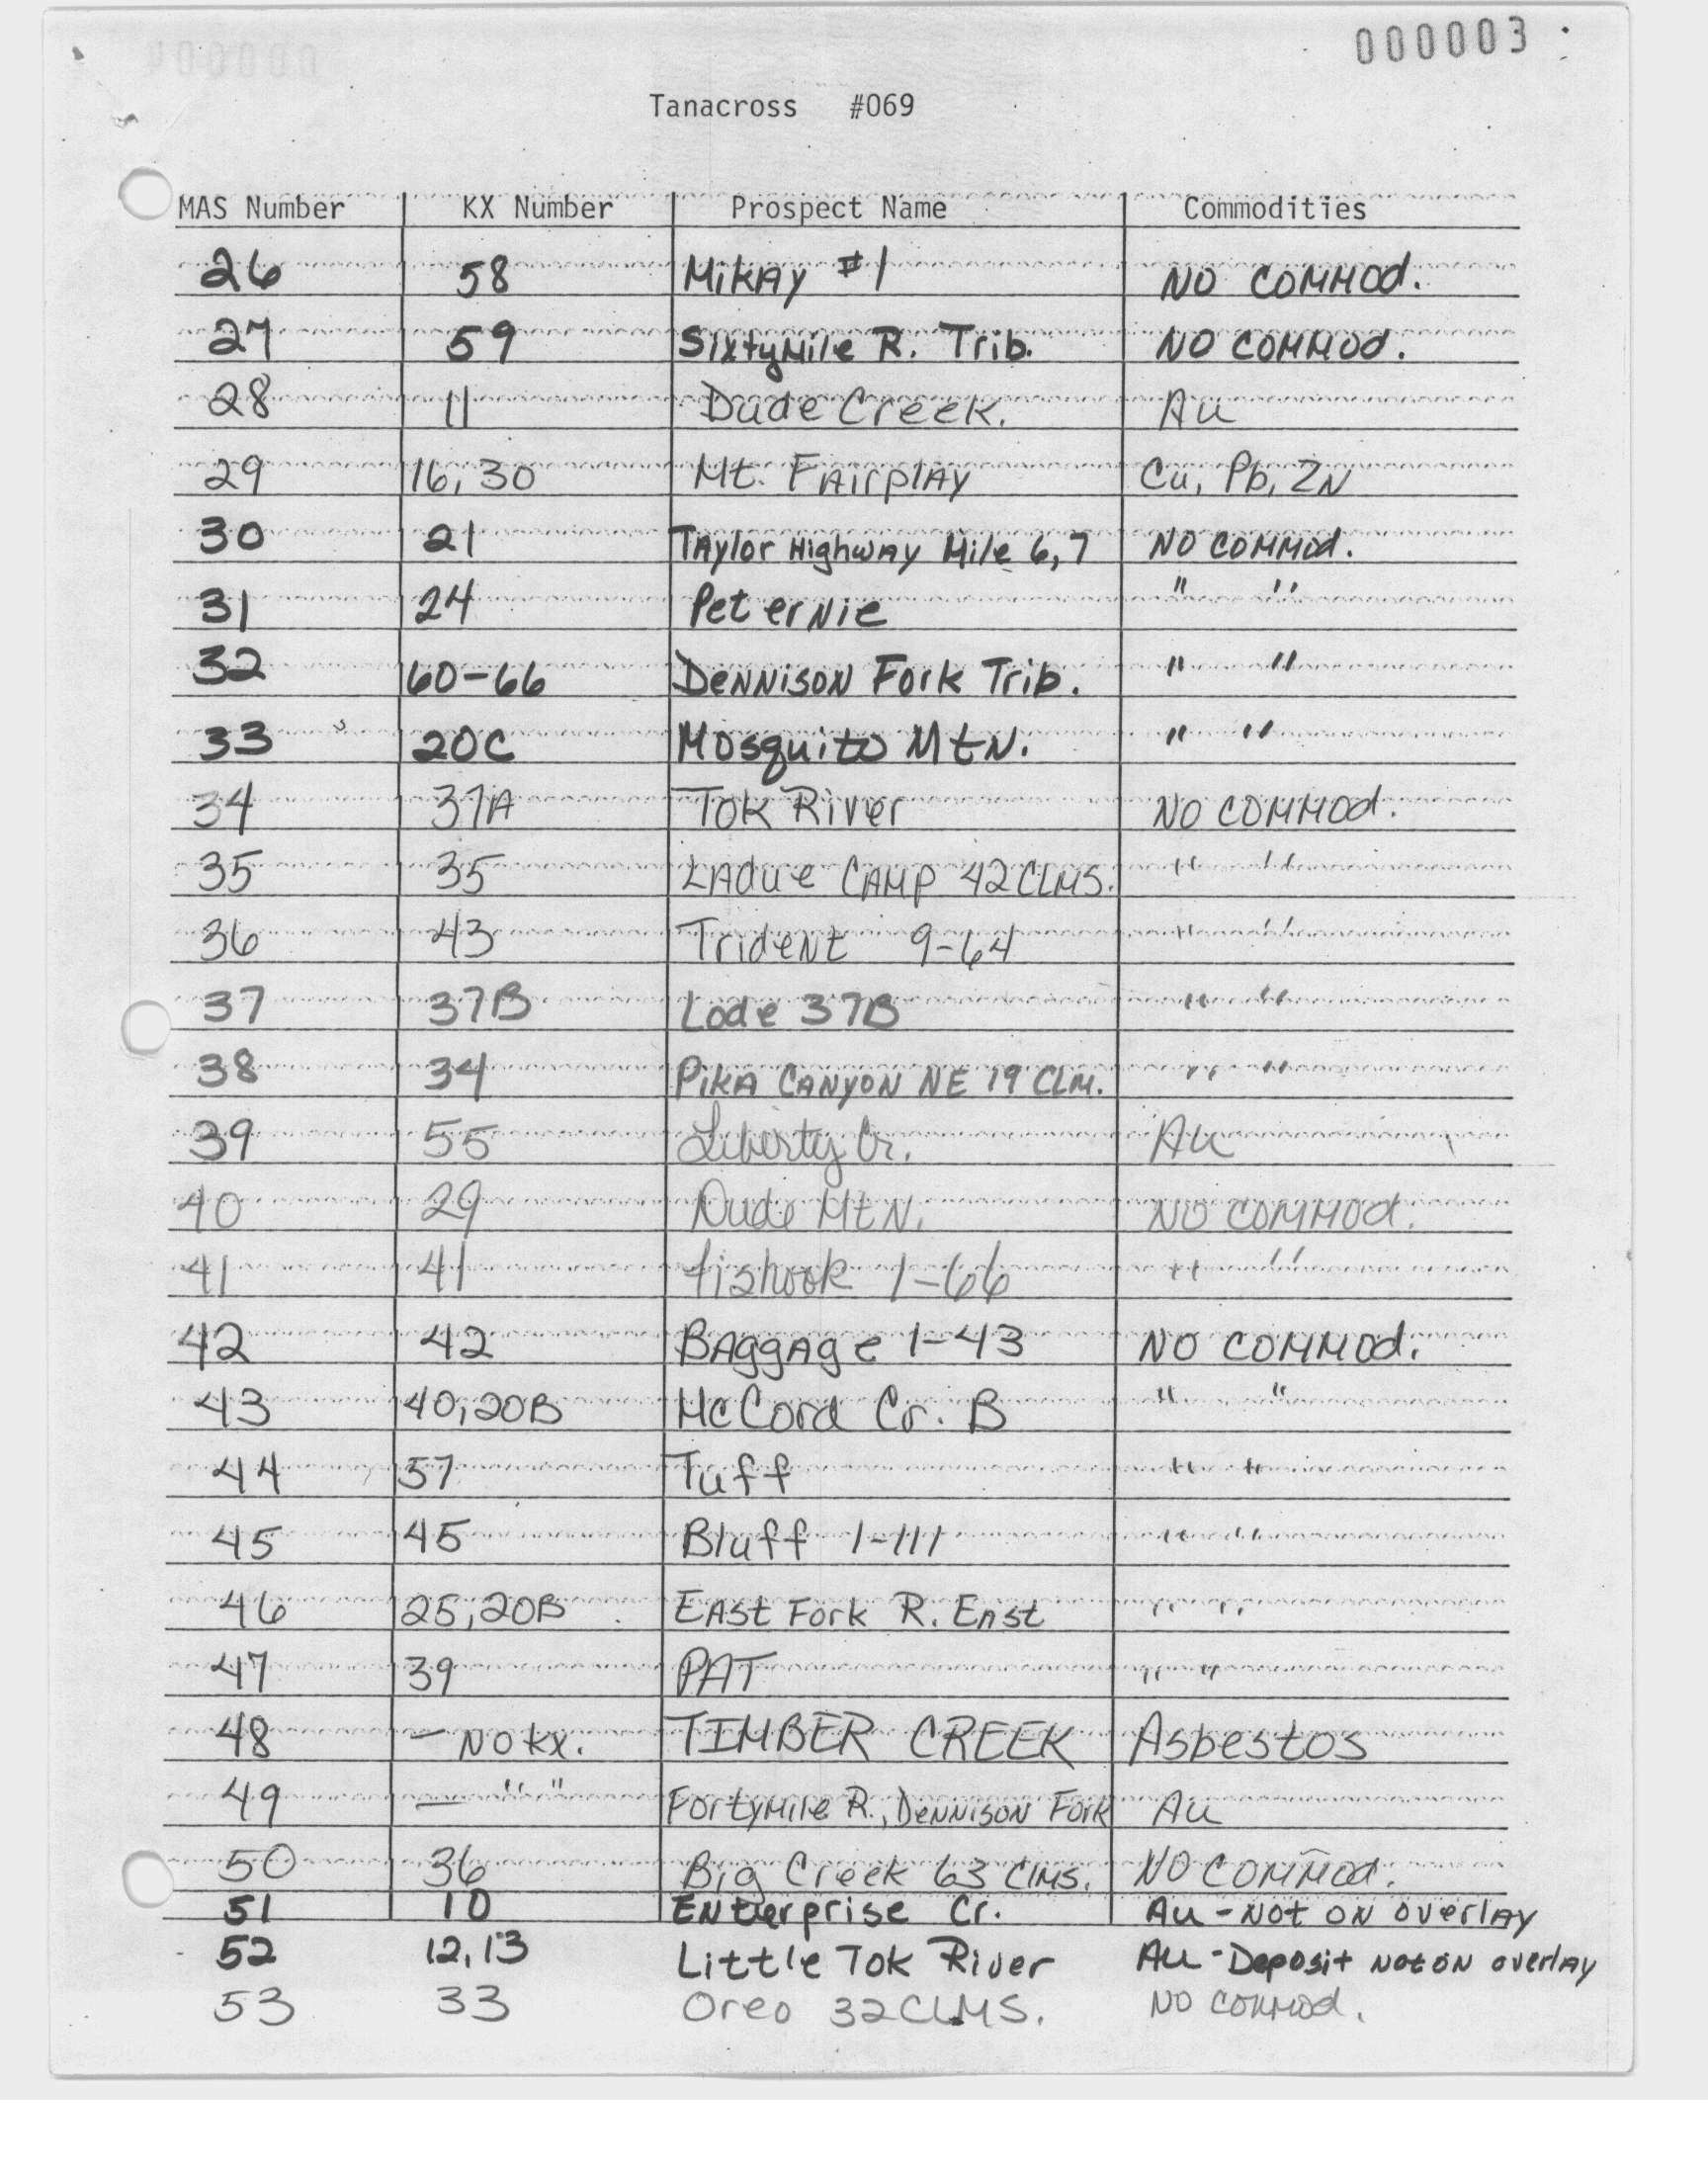 000003
Tanacross #069
MAS Number KX Number Prospect Name Commodities
26 58 MiKAy #1 NO COMMOD.
27 59 SixtyMile R. Trib. NO COMMOD.
28 11 Dude Creek. Au
29 16, 30 Mt. FAirplAy Cu, Pb, ZN
30 21 TAylor HighwAy Mile 6,7 NO COMMOD.
31 24 Peternie " "
32 60-66 DENNiSON Fork Trib. " "
33 20C Mosquito MtN. " "
34 37A TOK River NO COMMOD.
35 35 LAdue CAMP 42 CLMS. " "
36 43 TrideNt 9-64 " "
37 37B Lode 37B " "
38 34 PiKA CANYON NE 19 CLM. " "
39 55 Liberty Cr. Au
40 29 Dude MtN. NO COMMOD.
41 41 fishook 1-66 " "
42 42 BAggAge 1-43 NO COMMOD.
43 40,20B McCord Cr. B " "
44 57 Tuff " "
45 45 Bluff 1-111 " "
46 25,20B EAst Fork R. EAst " "
47 39 PAT " "
48 - NO KX. TIMBER CREEK Asbestos
49 - " " FortyMile R., DENNISON Fork Au
50 36 Big Creek 63 ClMS. NO COMMOD.
51 10 ENterprise Cr. Au - Not ON overlAy
52 12,13 Little Tok River Au - Deposit Not ON overlAy
53 33 Oreo 32 CLMS. NO COMMOD.